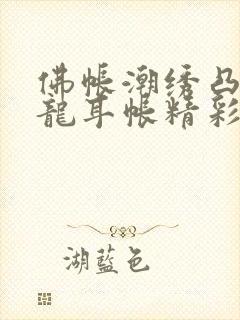 佛帐潮绣凸
龍耳帐精彩
湖藍色